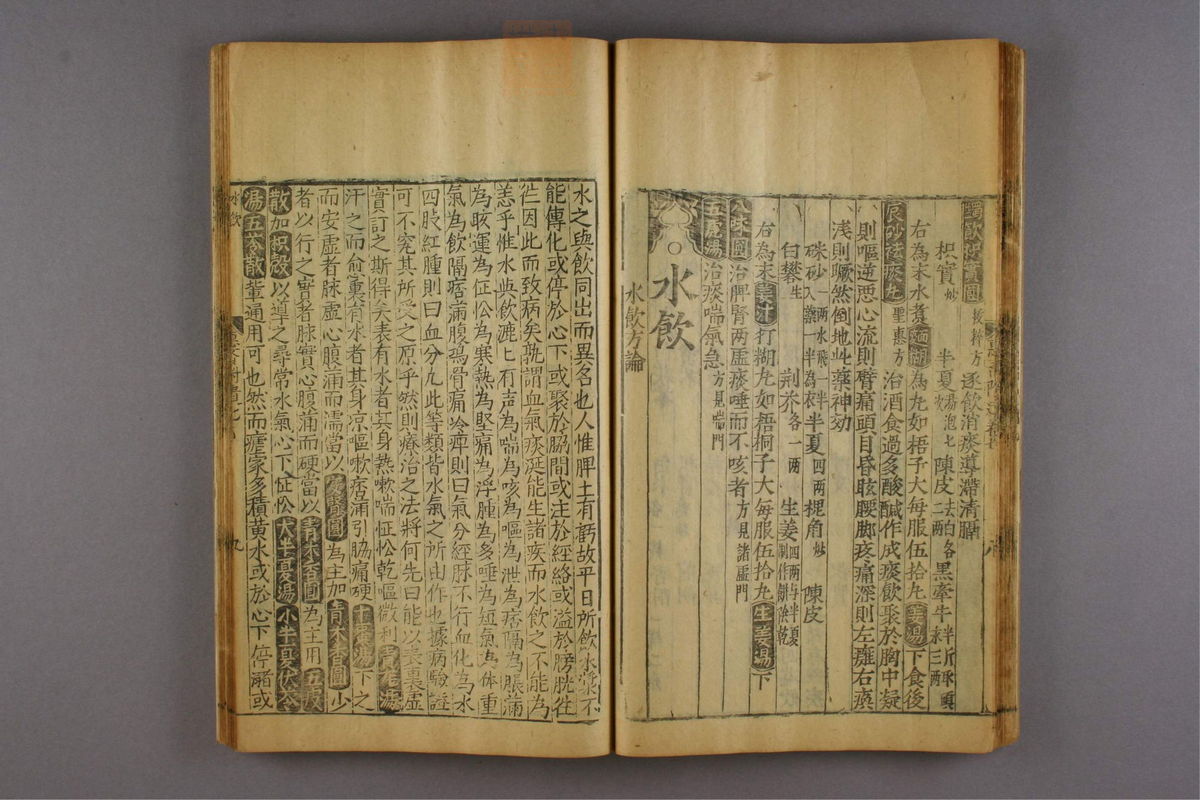 蠲飲枳實圓 拔粹方 逐飲消痰導滯清膈
枳實 炒 半夏 湯泡七次 陳皮 去白各二兩 黑牽牛 半斤取頭末三兩
右為末水煮麵糊為丸如梧子大每服伍拾丸姜湯下食後
辰砂祛痰丸 聖惠方 治酒食過多酸醎作成痰飲聚於胸中凝
則嘔逆惡心流則臂痛頭目昏眩腰脚疼痛深則左癱右瘓
浅則蹶然倒地此藥神効
硃砂 一兩水飛一半入藥一半為衣 半夏 四兩 梍角 炒 陳皮
白礬 生 荆芥 各一兩 生姜 四兩与半夏制作餠陰乾
右為末姜汁打糊丸如梧桐子大每服伍拾丸生姜湯下
八味圓 治脾腎两虛痰唾而不咳者 方見諸虛門
五虎湯 治痰喘氣急 方見喘門
水飲
水飲方論
水之與飲同出而異名也人惟脾土有虧故平日所飲水漿不
能傳化或停於心下或聚於脇間或注於經絡或溢於膀胱徃
徃因此而致病矣孰謂血氣痰涎能生諸疾而水飲之不能為
恙乎惟水與飲漉匕有声為喘為咳為嘔為泄為痞隔為脹滿
為眩運為怔忪為寒熱為堅痛為浮腫為多唾為短氣為体重
氣為飲隔痞滿腹鳴骨痛冷痺則曰氣分經脉不行血化為水
四肢紅腫則曰血分凡此等類皆水氣之所由作也據病驗證
可不究其所受之原乎然則療治之法將何先曰能以表裏虛
實訂之斯得矣表有水者其身熱嗽喘怔忪乾嘔微利青龍湯
汗之而愈裏有水者其身凉嘔嗽痞滿引脇痛硬十棗湯下之
而安虛者脉虛心腹滿而濡當以安腎圓為主加青木香圓少
者以行之實者脉實心腹滿而硬當以青木香圓為主用五皮
散加枳殼以導之尋常水氣心下怔忪大半夏湯小半夏茯苓
湯五苓散輩通用可也然而瘧家多積黄水或於心下停潴或
水飲
九